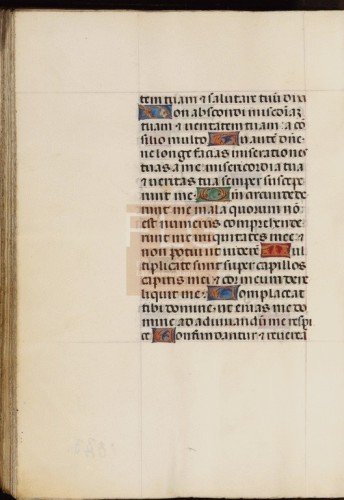 tem tuam & salutare tuũ dixi
Non abscondi miscďiaz
tuam & veritatem tuam: a co
silio multo Tu autẽ dñe
ne longe facias miserationes
tuas a me: misericordia tua
& veritas tua semper suscepe
runt me. Qm circũdede
runt me mala quorum nõ
est numerus comprehende
runt me iniquitates mee: &
non potui ut viderẽ Mul
tiplicate sunt super capillos
capitis mei: & cor meum dere
liquit me. Complaceat
tibi domine: ut eruas me do
mine ad adiuuandũ me respi
ce. Confundantur & reuereã